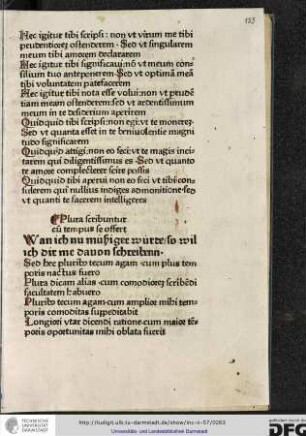 123
Nec igitur tibi scripsi : non vt virum me tibi
prudentiorez ostenderem · Sed vt singularem
meum tibi amorem declararem
Nec igitur tibi significaui: nō vt meum con-
silium tuo anteponerem · Sed vt optimā meā
tibi voluntatem patefacerem
Nec igitur tibi nota esse volui: non vt prudē
tiam meam ostenderem: sed vt ardentissimum
meum in te desiderium aperirem
Quidquid tibi scripsi: non egi: vt te monerez
Sed vt quanta esset in te beniuolentie magni
tudo significarem
Quidquid attigi: non eo feci: vt te magis inci-
tarem qui diligentissimus es · Sed vt quanto
te amore complecterer scire possis
Quidquid tibi aperui non eo feci vt tibi con-
sulerem qui nullius indiges admonitione · sed
vt quanti te facerem intelligeres
Plura scribuntur
cū tempus se offert
Wan ich nu mußiger würde / so wil
ich dir me dauon schreiben ·
Sed hec pluribo tecum agam · cum plus tem
poris nactus fuero
Plura dicam alias · cum comodiorez scribēdi
facultatem habuero
Pluribo tecum agam · cum amplior mihi tem
poris comoditas suppeditabit
Longiori vtar dicendi ratione · cum maior tē
poris oportunitas mihi oblata fuerit
TECHNISCHE
UNIVERSITÄT
DARMSTADT
http://tudigit.ulb.tu-darmstadt.de/show/inc-ii-57/0263
Universitäts- und Landesbibliothek Darmstadt
DFG